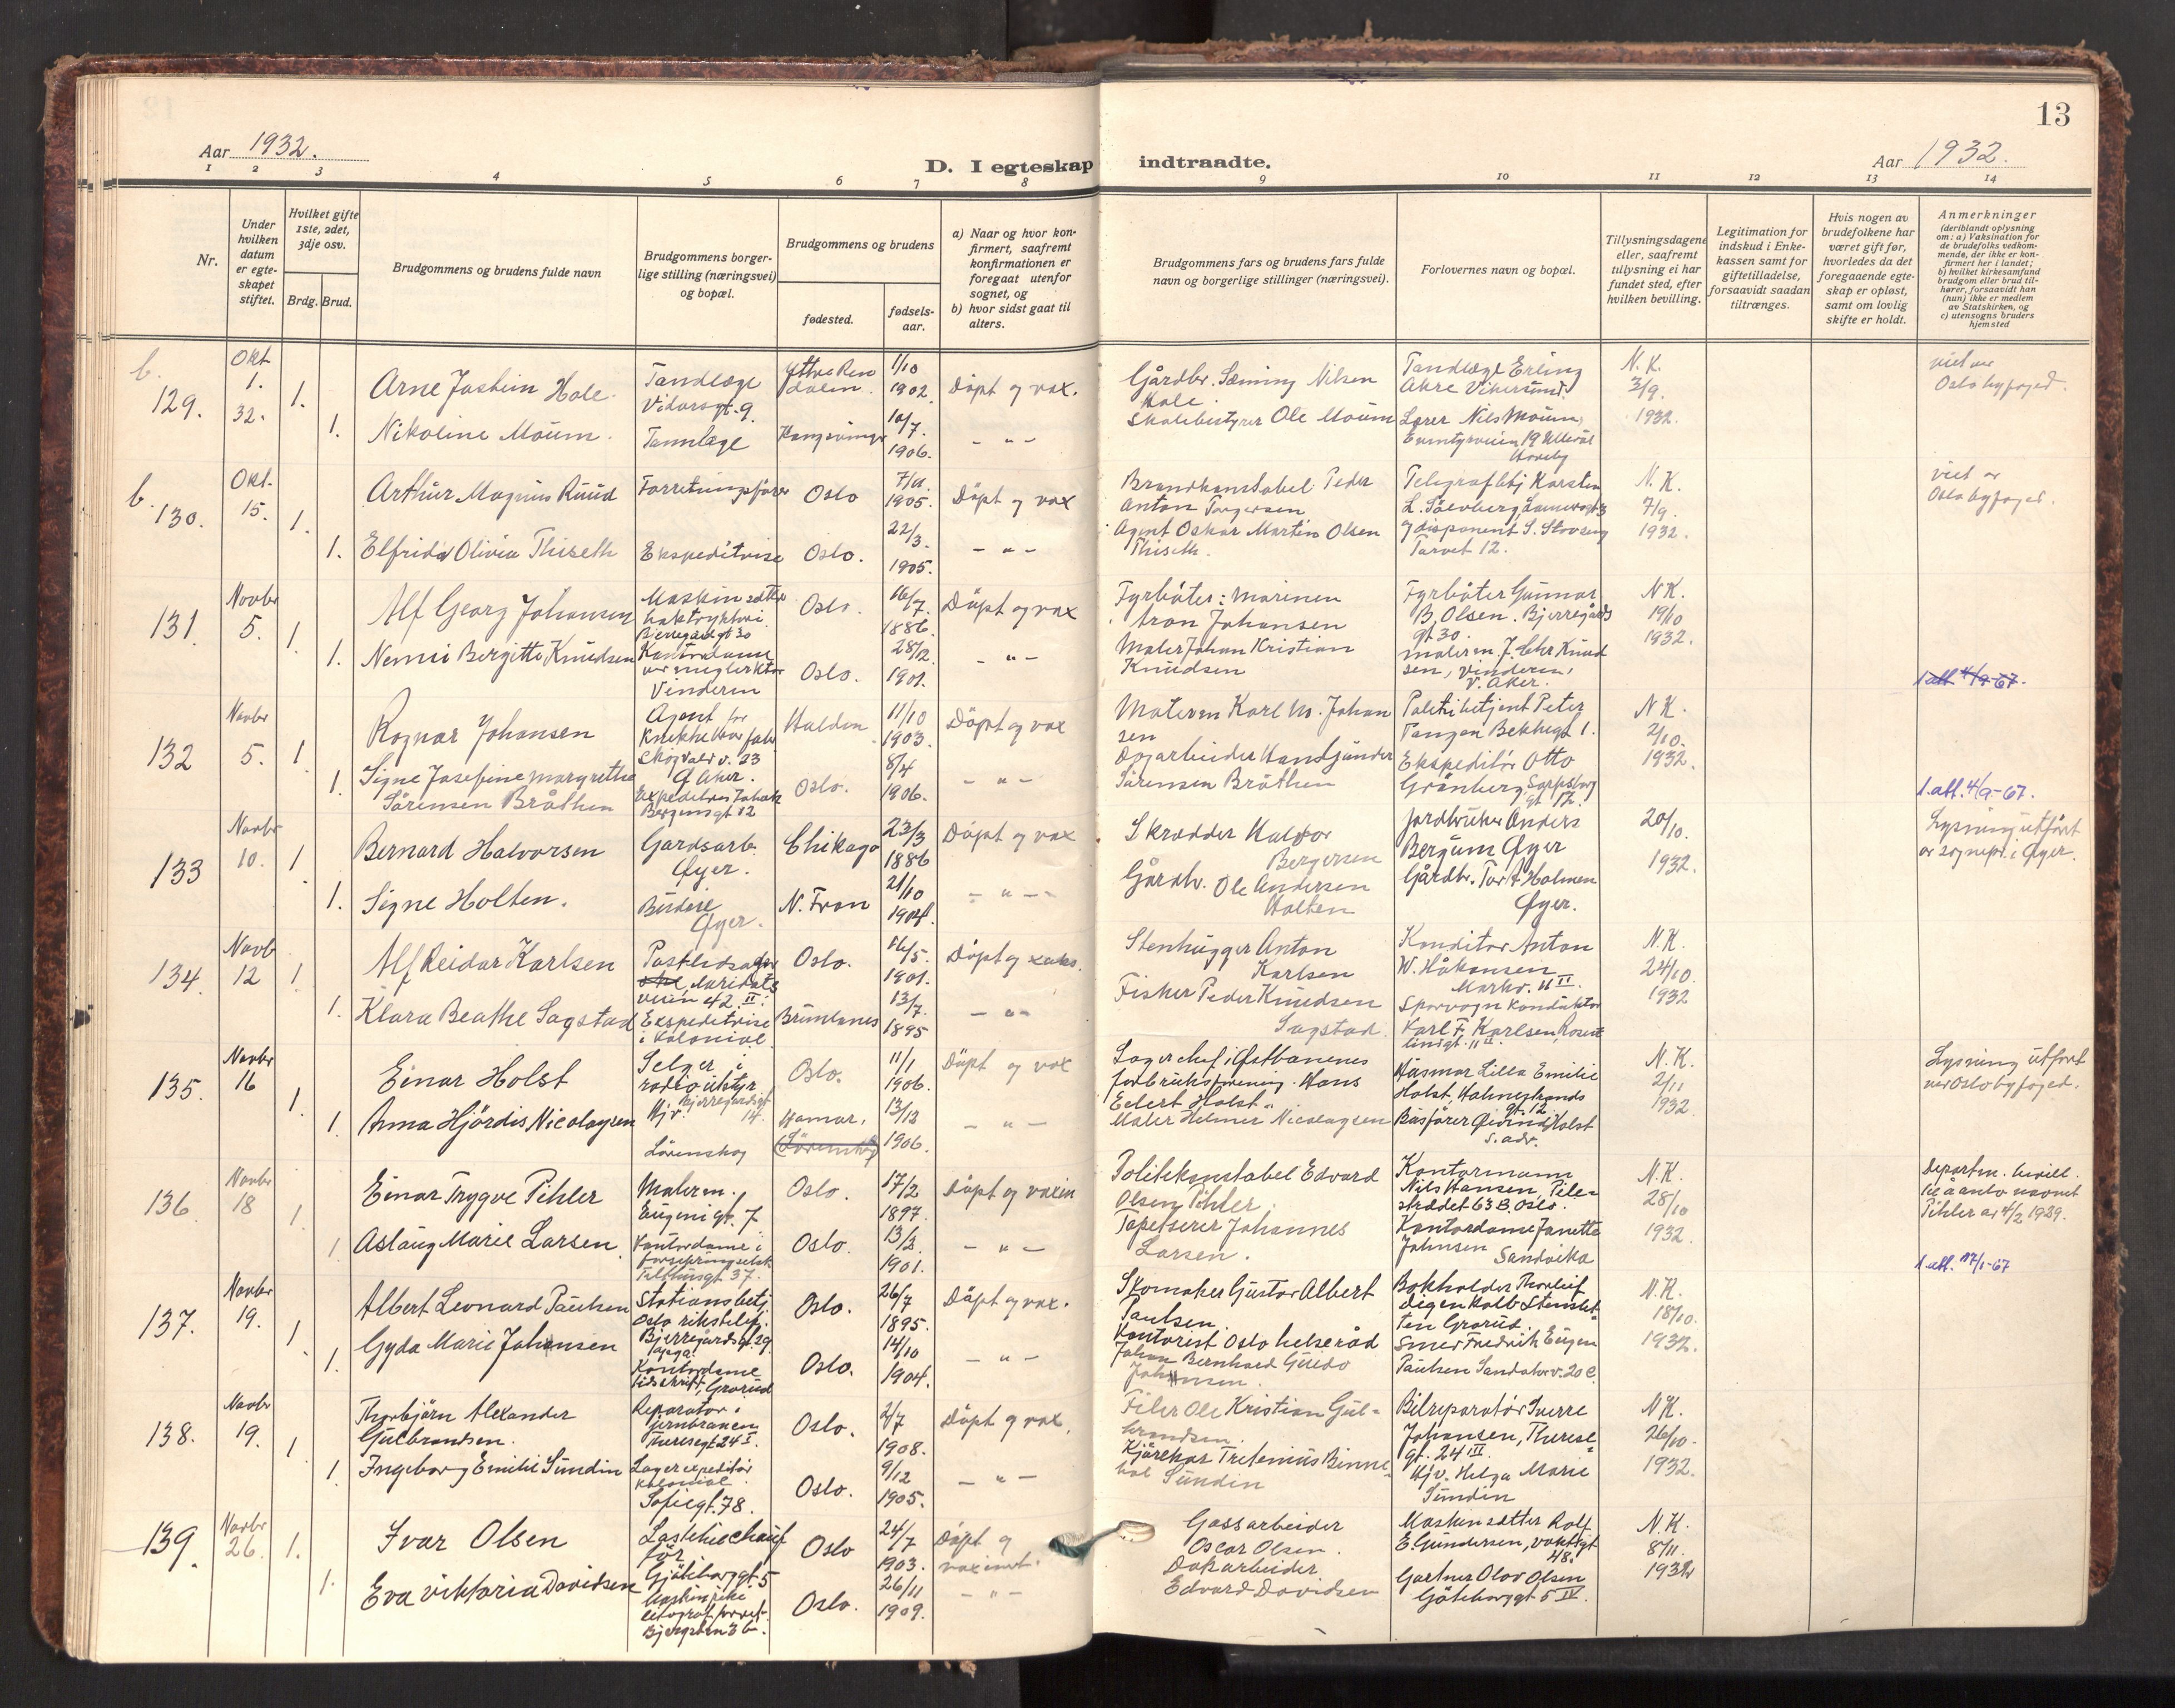 13
Aar 1932.
D. I egteskap indtraadte.
Aar 1932.
1 2 3 4 5 6 7 8 9 10 11 12 13 14
Nr.
Under hvilken datum er egte-skapet stiftet.
Hvilket gifte 1ste, 2det, 3dje osv.
Brdg. Brud.
Brudgommens og brudens fulde navn
Brudgommens borger-lige stilling (næringsvei) og bopæl.
Brudgommens og brudens
fødested.
fødsels-aar.
a) Naar og hvor kon-firmert, saafremt konfirmationen er foregaat utenfor sognet, og
b) hvor sidst gaat til alters.
Brudgommens fars og brudens fars fulde navn og borgerlige stillinger (næringsvei).
Forlovernes navn og bopæl.
Tillysningsdagene eller, saafremt tillysning ei har fundet sted, efter hvilken bevilling.
Legitimation for indskud i Enke-kassen samt for giftetilladelse, forsaavidt saadan tiltrænges.
Hvis nogen av brudefolkene har været gift før, hvorledes da det foregaaende egte-skap er opløst, samt om lovlig skifte er holdt.
Anmerkninger (deriblandt oplysning om: a) Vaksination for de brudefolks vedkom-mende, der ikke er kon-firmert her i landet; b) hvilket kirkesamfund brudgom eller brud til-hører, forsaavidt han (hun) ikke er medlem av Statskirken, og c) utensogns bruders hjemsted
b. 129. Okt 1. 32. 1. Arne Jostein Hole Tandlæge Vidarsgt. 9. Ytre Rendalen 1/10 1902. Døpt og vax. Gårdbr. Sæming Nilsen Hole Tandlæge Erling Akre Vikersund. N. K. 3/9. 1932. viet av Oslo byfoged.
1. Nikoline Moum. Tannlæge Kongsvinger 10/7. 1906. - " - Skolebestyrer Ole Moum Lærer Nils Moum, Eventyrveien 19 Ullevål Haveby
b. 130. Okt. 15. 1. Arthur Magnus Ruud Forretningsfører Oslo 1905. Døpt og vax Brandkonstabel Peder Anton Torgersen Telegrafbtj Karsten N. K. 7/9. 1932. viet av Oslo byfoged.
1. Elfrida Olivia Thiseth Ekspeditrise Oslo. 22/3. 1905. - " - Agent Oskar Martin Olsen Thiseth. disponent S. Torvet 12.
131. Novbr 5. 1. Alf Georg Johansen Maskinsætter Bjerregårdsgt 30 Oslo. 16/7. 1886. Døpt og vax Fyrbøter i marinen Aron Johansen Fyrbøter Gunnar B. Olsen. Bjerregårds gt 30. N K. 19/10 1932.
1. Nenni Bergitte Knudsen Kontordame Vinderen Oslo. 28/12. 1901. - " - Maler Johan Kristian Knudsen malerm. J. Chr Knudsen, Vinderen, V. Aker. 1 att 4/9-67.
132 Novbr 5. 1. Ragnar Johansen Agent for Skogvald v. 23 Ø Aker. Halden 11/10 1903. Døpt og vax Malerm Karl M. Johansen Politibetjent Peter Tangen Bekkegt 1. N K. 2/10. 1932.
1. Signe Josefine Margrethe Sørensen Bråthen Expeditrise Bergensgt 12 Oslo. 8/4 1906. - " - Sørensen Bråthen Ekspeditør Otto Grønberg, Sarpsborg gt 12. 1. att. 4/9-67.
133 Novbr 10. 1. Bernard Halvorsen Gardsarb. Øyer. Chikago 23/3 1886 Døpt og vax Skrædder Halvor Bergersen Jordbruker Anders Bergum Øyer 20/10. 1932. Lysning utført av sognepr. i Øyer.
1. Signe Holten. Budeie Øyer. N. Fron 21/10 1904. - " - Gårdbr. Ole Andersen Holten Gårdbr. Tor A. Holmen Øyer.
134. Novb 12 1. Alf Reidar Karlsen Maridalsveien 42. II. Oslo. 16/5. 1901. Døpt og vaks. Stenhugger Anton Karlsen Konditor Anton W. Håkonsen Markv. 11 II N. K. 24/10. 1932
1. Klara Beathe Sagstad Ekspeditrise i kolonial Brumunes 13/7. 1895 - " - Fisker Peder Knudsen Sagstad. Sporvogn konduktør Karl F. Karlsen, Rosenlundgt. 11
135. Novbr 16 1. Einar Holst Selger i radioutstyr Bjerregårdsgt 14. Oslo. 11/1 1906. Døpt og vax Lagerchef i Østbanenes forbruksforening. Hans Edert Holst. Husmor Lilla Emilie Holst, Holmestrands gt. 12. N. K. 2/11 1932 Lysning utført ved Oslo byfoged.
1. Anna Hjørdis Nicolaysen Hjv. Lørenskog Hamar. (Lørenskog) 13/12 1906. - " - Maler Helmer Nicolaysen Busfører Øivind Holst s. adr.
136. Novbr 18 1. Einar Trygve Pihler Malerm. Eugenigt. 7 Oslo. 17/2 1897. Døpt og vaxin Politikonstabel Edvard Olsen Pihler. Kontormann Nils Hansen, Pilestrædet 63 B, Oslo. N. K. 28/10 1932. Departm. bevill. til å anta navnet Pihler av 4/2 1929.
1 Aslaug Marie Larsen Kontordame i forsikringselsk Tofthusgt 37. Oslo. 13/2. 1901. - " - Tapetserer Johannes Larsen. Kontordame Janette Johnsen Sandvika 1. att. 17/1-67
137. Novbr 19. 1. Albert Leonard Paulsen Stationsbetj. Oslo rikstelef. Bjerregårdsgt. 29 Oslo. 26/7 1895. Døpt og vax. Skomaker Gustav Albert Paulsen Bokholder Thorleif Grorud. N. K. 18/10. 1932.
1. Gyda Marie Johansen Kontordame Grorud Oslo. 14/10 1904. - " - Kontorist Oslo helseråd Johan Bernhard Guido Johansen. Smed Fredrik Eugen Paulsen Sandakerv. 20 C.
138. Novbr 19. 1 Thorbjørn Alexander Gulbrandsen. Reparatør i jernbranchen Theresegt. 24 I. Oslo. 2/7 1908. Døpt og vax. Filer Ole Kristian Gulbrandsen Bilreparatør Sverre Johansen, Therese- gt. 24 III N K. 26/10. 1932.
1. Ingeborg Emilie Sundin Lagerexpeditør kolonial Sofiegt. 78. Oslo. 9/12 1905. - " - Kjørekar Tretenius Binne Sundin Hjv. Helga Marie Sundin
139. Novbr 26. 1. Ivar Olsen Lastebilchauffør Gøteborggt 5 Oslo 24/7 1903. Døpt og vaxinert. Gassarbeider Oscar Olsen. Maskinsætter Rolf E Gundersen, 48. N. K. 8/11. 1932
1. Eva Viktoria Davidsen Maskinpike Oslo. 26/11 1909. - " - Dokarbeider Edvard Davidsen Gartner Olav Olsen Gøteborggt 5 IV.